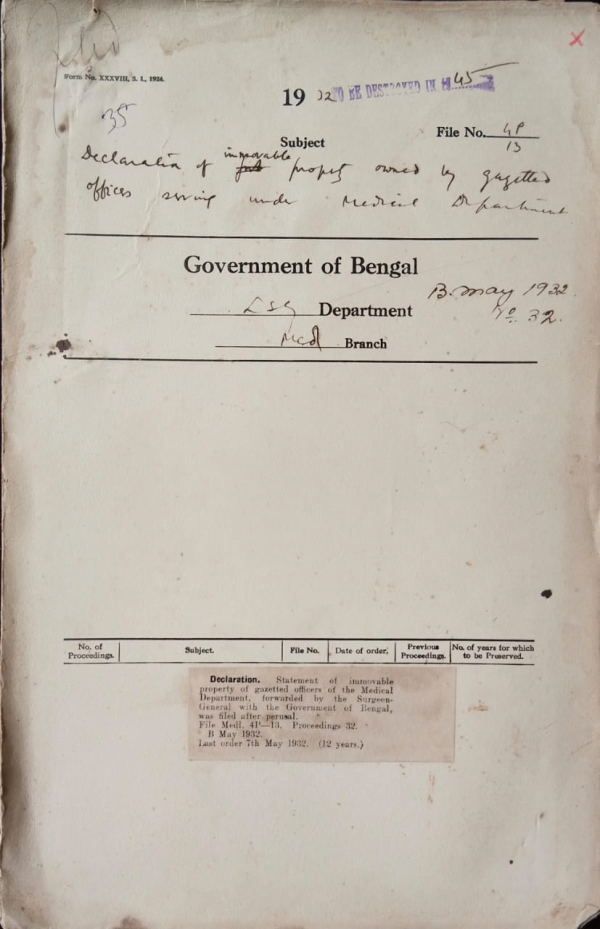 Filed
Form No. XXXVIII, S. I., 1926.
19 32 TO BE DESTROYED IN 1945
35
Subject
File No. 4P/13
Declaration of immovable property owned by gazetted
offices serving under Medical Department
Government of Bengal
LSG Department
B. May 1932
No. 32.
Med Branch
No. of Proceedings. Subject. File No. Date of order. Previous Proceedings. No. of years for which to be Preserved.
Declaration. Statement of immovable
property of gazetted officers of the Medical
Department, forwarded by the Surgeon-
General with the Government of Bengal,
was filed after perusal.
File Medl. 4P—13. Proceedings 32.
B May 1932.
Last order 7th May 1932. (12 years.)